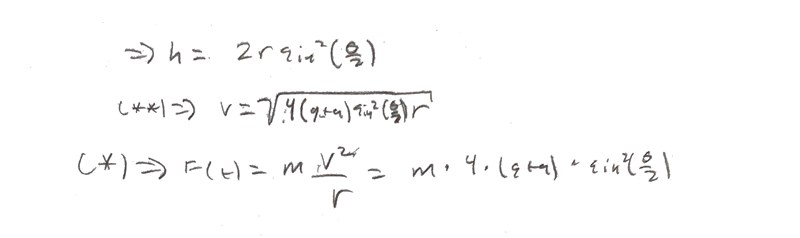 => h = 2 r sin²(θ/2)
(**) => v = √(4(g+a) sin²(θ/2) r)
(*) => F(t) = m v²/r = m · 4 · (g+a) · sin²(θ/2)